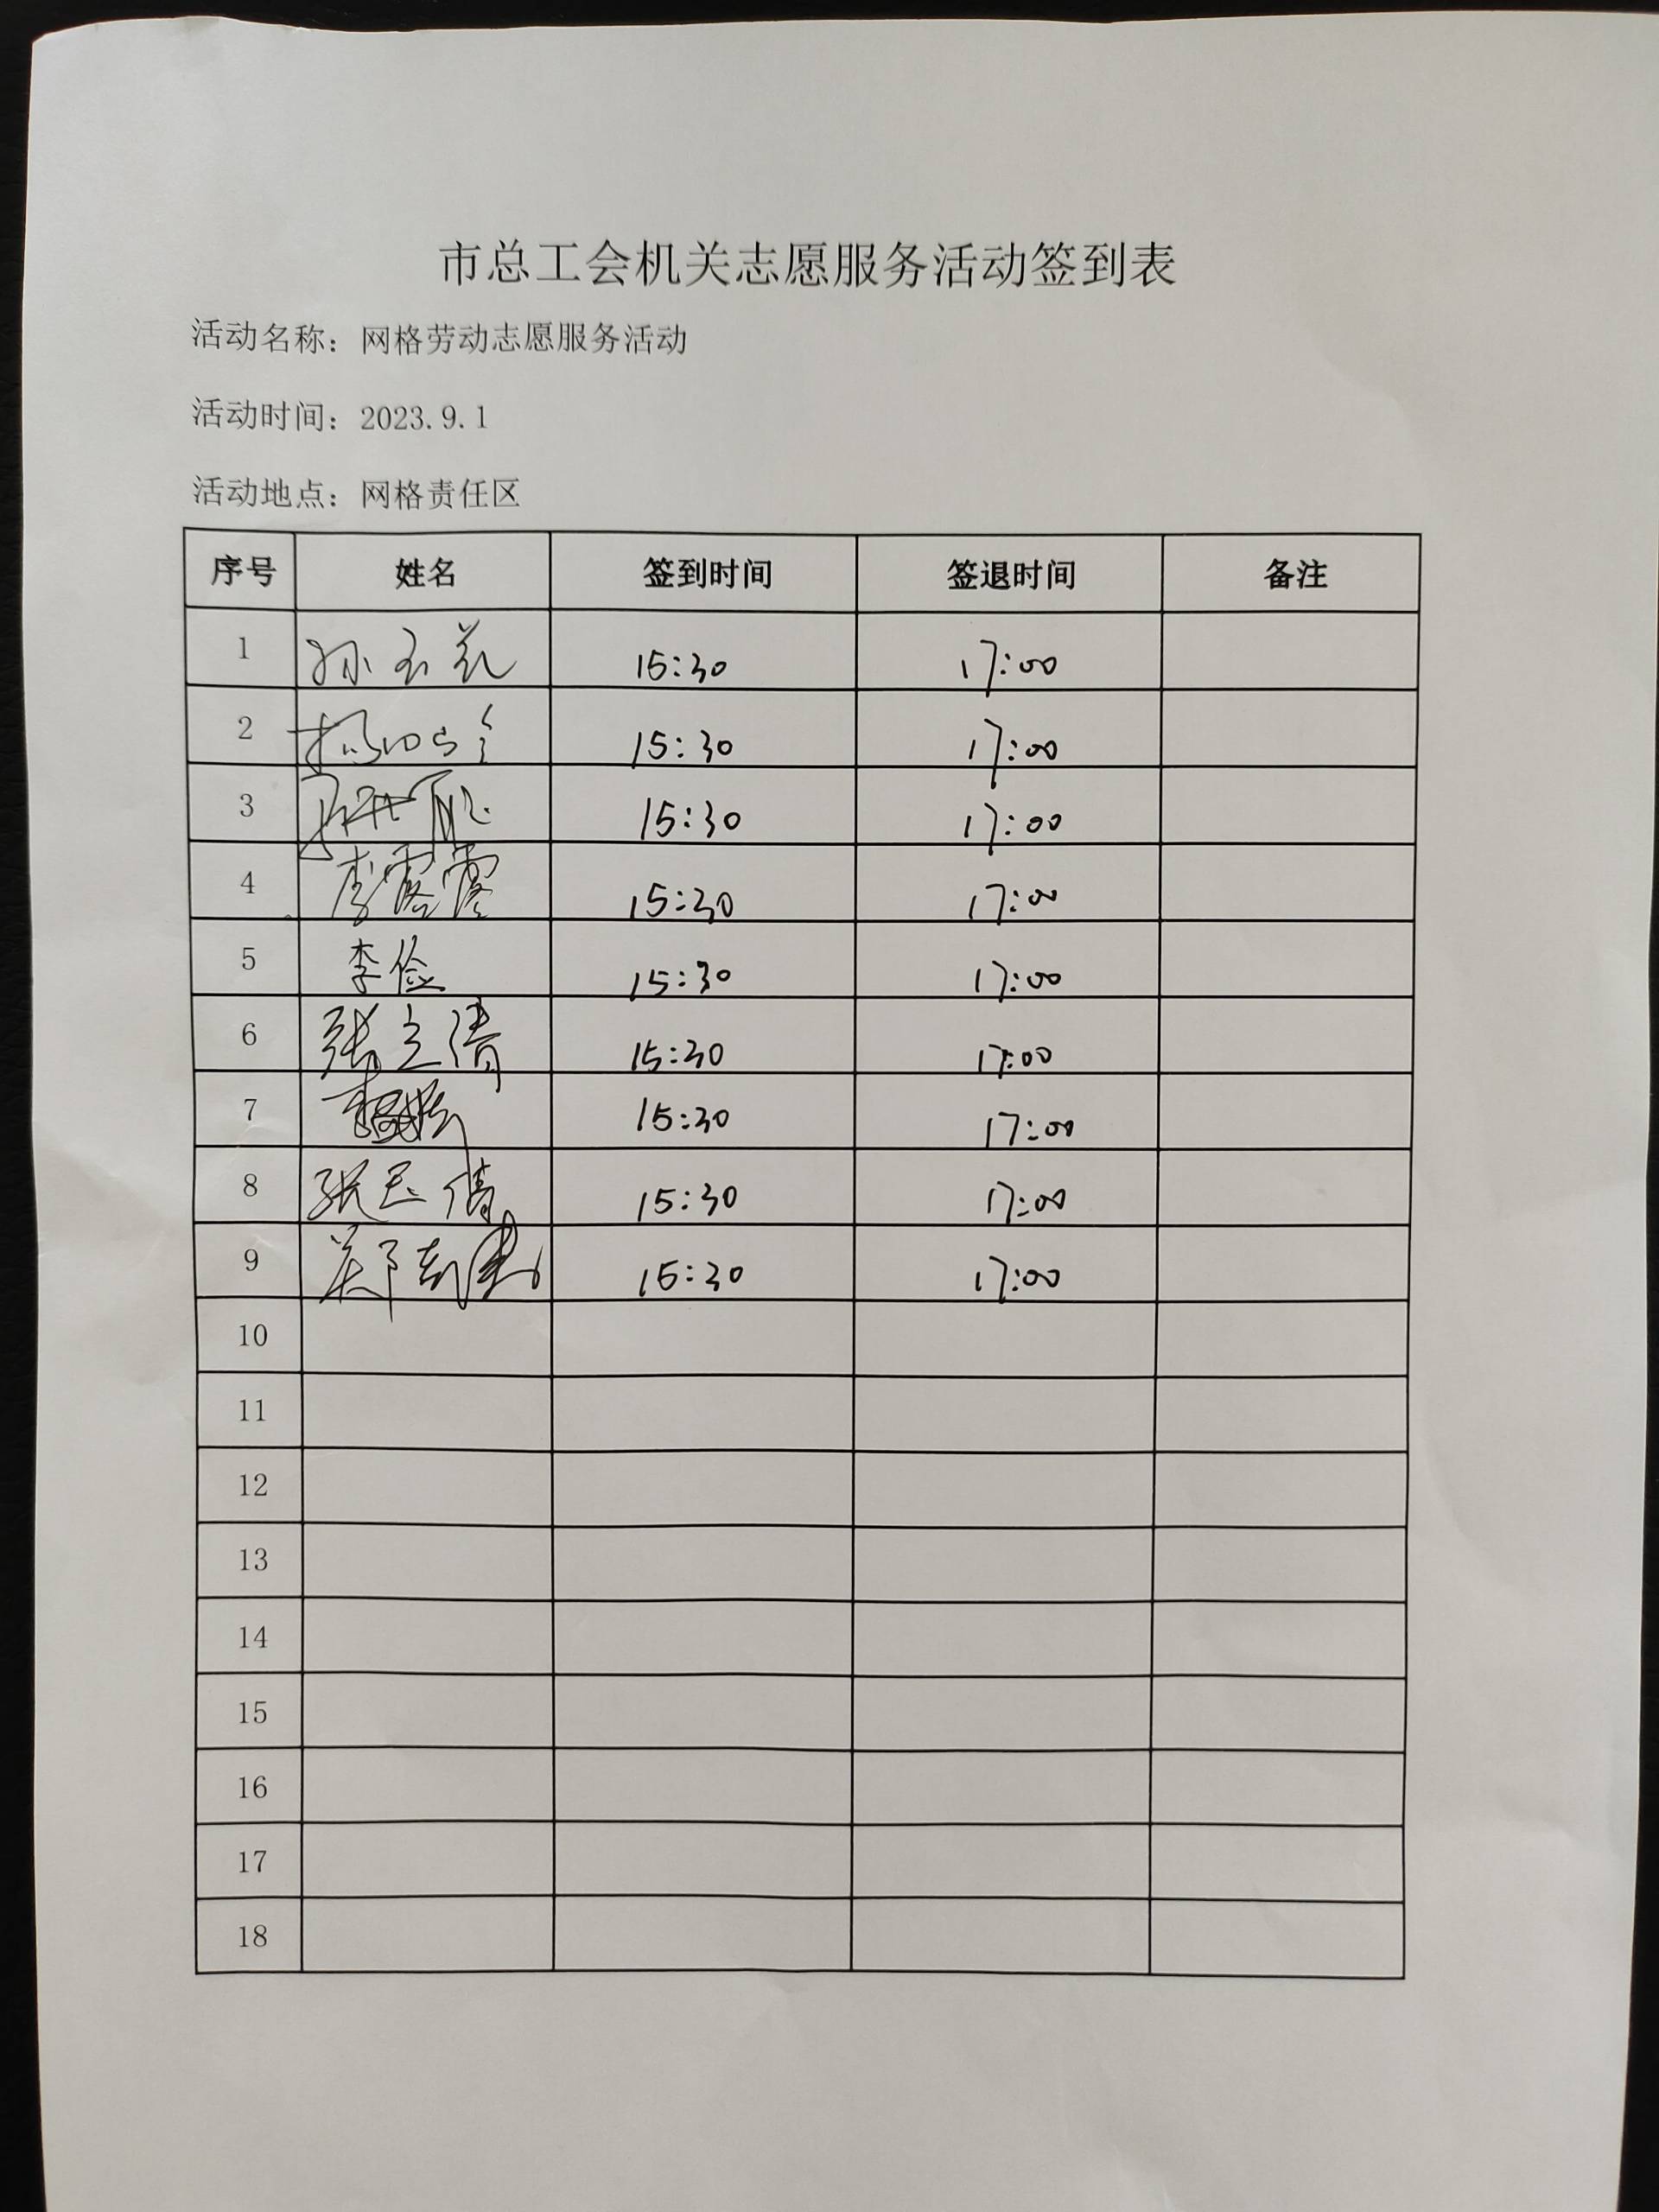 市总工会机关志愿服务活动签到表
活动名称：网格劳动志愿服务活动
活动时间：2023.9.1
活动地点：网格责任区
序号 姓名 签到时间 签退时间 备注
1 孙玉 15:30 17:00
2 杨 15:30 17:00
3 15:30 17:00
4 李露露 15:30 17:00
5 李俭 15:30 17:00
6 张立清 15:30 17:00
7 15:30 17:00
8 张玉倩 15:30 17:00
9 郑志 15:30 17:00
10
11
12
13
14
15
16
17
18